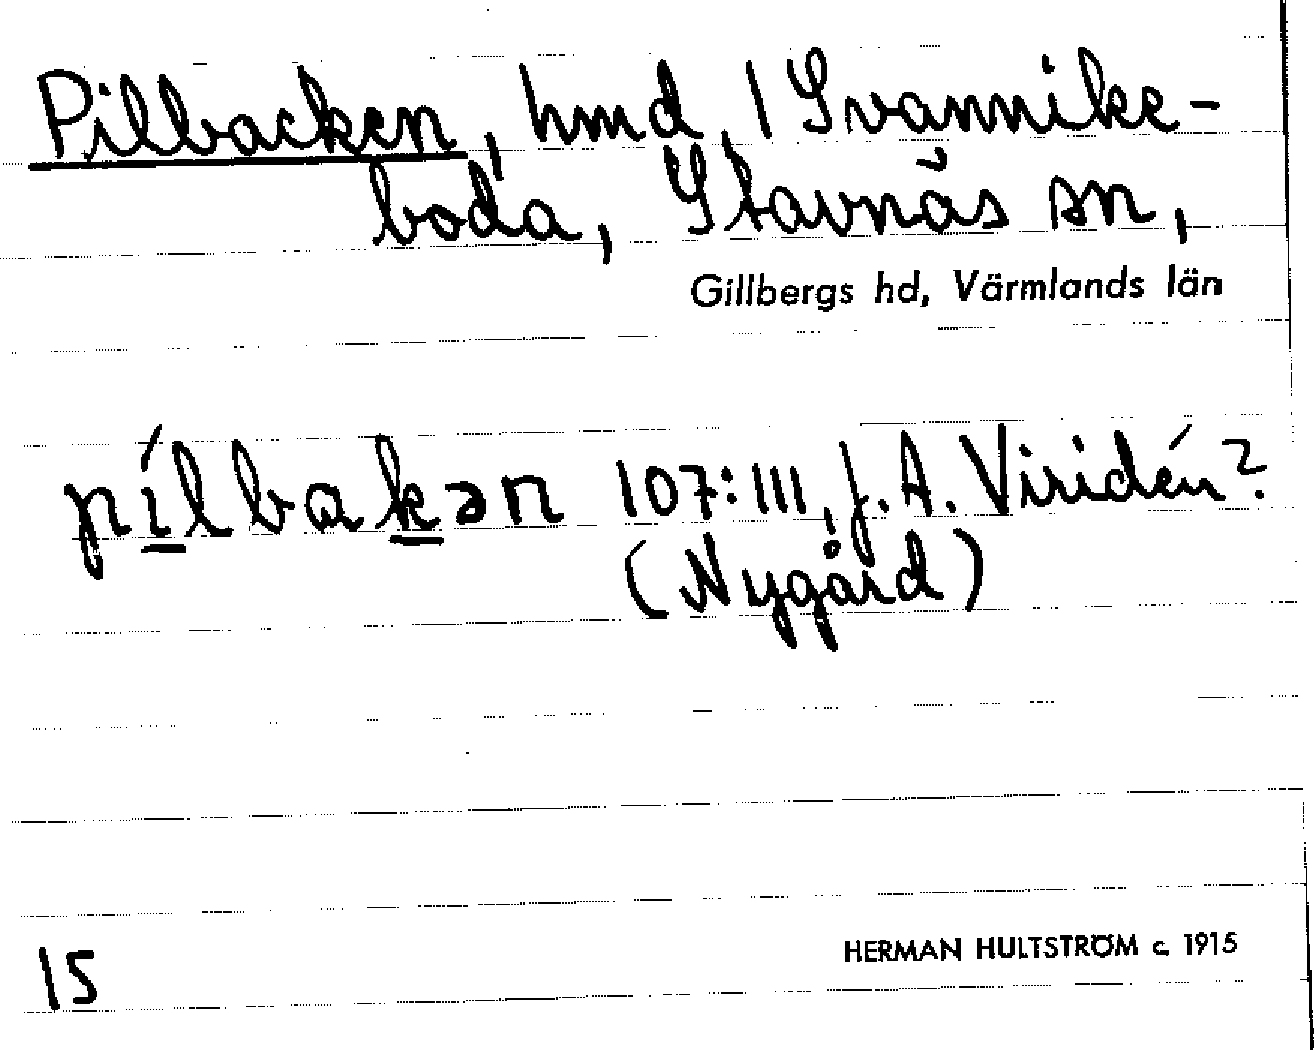 Pilbacken, hmd, 1 Svannike-
boda, Stavnäs sn,
Gillbergs hd, Värmlands län
pílbakən 107:111, J. A. Viridén?
(Nygård)
15
HERMAN HULTSTRÖM c. 1915